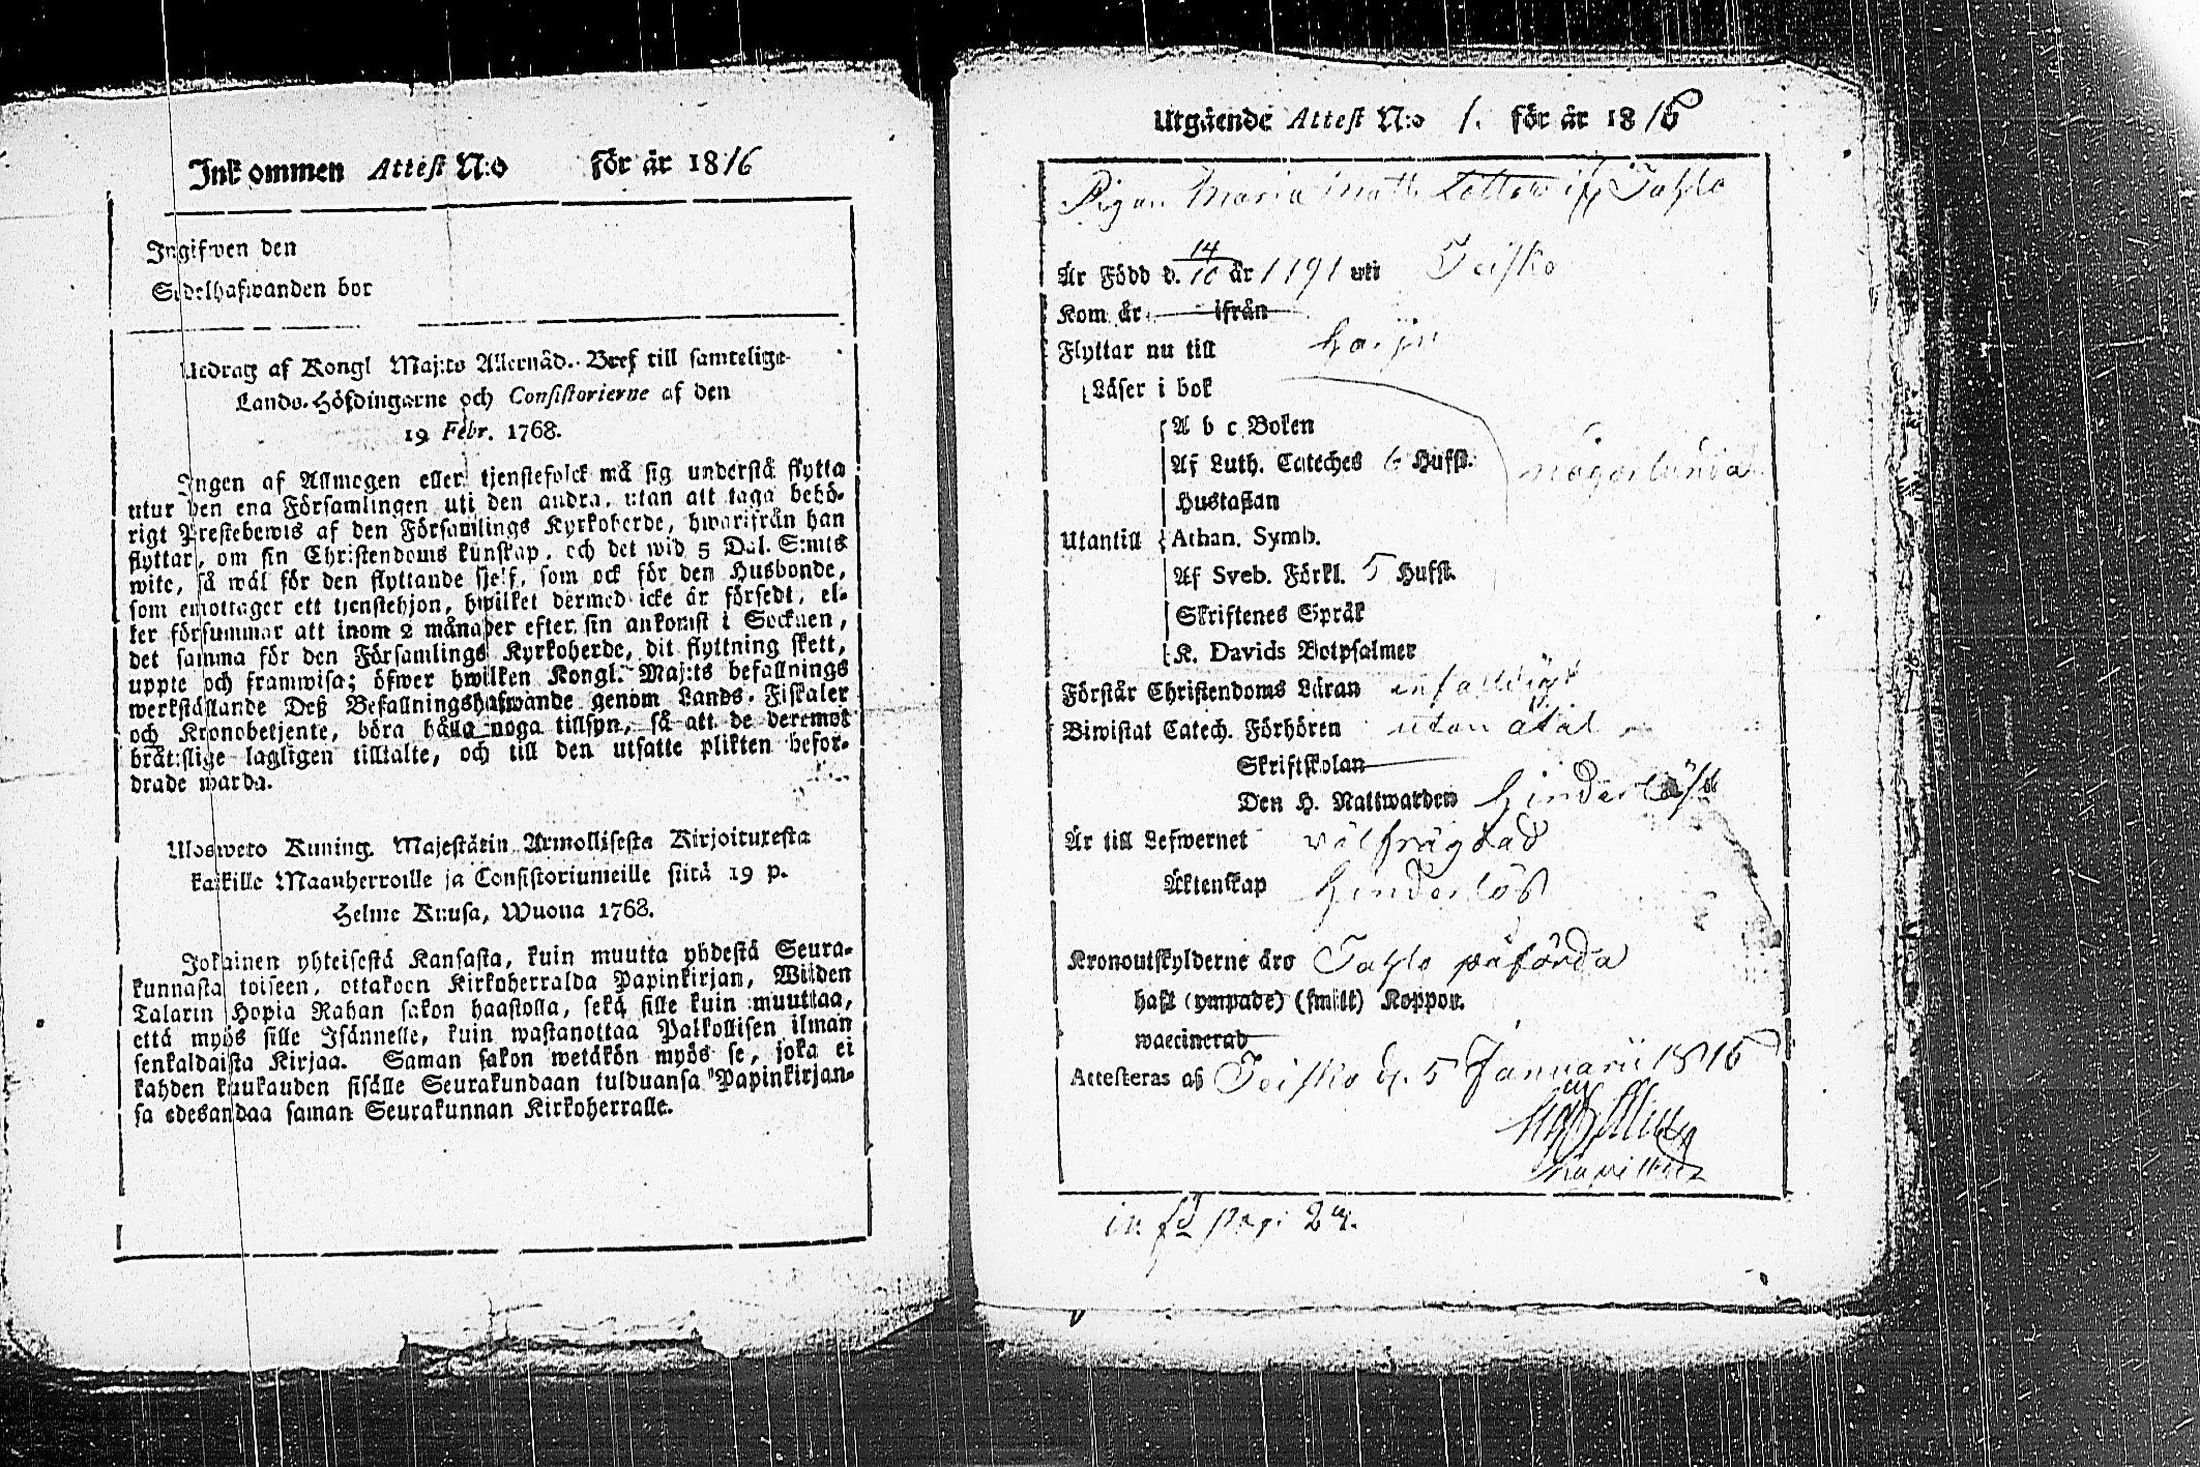 Inkommen Attest N:o för år 1816
Ingifwen den
Sedelhafwanden bor
Utdrag af Kongl Maj:ts Allernåd. Bref till samtelige
Lands-Höfdingarne och Consistorierne af den
19 Febr. 1768.
Ingen af Allmogen eller tjenstefolck må sig understå flytta
utur den ena Församlingen uti den andra, utan att taga behö-
rigt Prestebewis af den Församlings Kyrkoherde, hwarifrån han
flyttar, om sin Christendoms kunskap, och det wid 5 Dal. S:mts
wite, så wäl för den flyttande sjelf, som ock för den Husbonde,
som emottager ett tjenstehjon, hwilket dermed icke är försedt, el-
ler försummar att inom 2 månader efter sin ankomst i Socknen,
det samma för den Församlings Kyrkoherde, dit flyttning skett,
uppte och framwisa; öfwer hwilken Kongl. Maj:ts befallnings
werkställande Deß Befallningshafwande genom Lands-Fiskaler
och Kronobetjente, böra hålla noga tillsyn, så att de deremot
bråtslige lagligen tilltalte, och till den utsatte plikten befor-
drade warda.
Ulosweto Kuning. Majestätin Armollisesta Kirjoituxesta
kaikille Maanherroille ja Consistoriumeille siitä 19 p.
Helme Kuusa, Wuona 1768.
Jokainen yhteisestä Kansasta, kuin muutta yhdestä Seura-
kunnasta toiseen, ottakoon Kirkoherralda Papinkirjan, Wiiden
Talarin Hopia Rahan sakon haastolla, sekä sille kuin muuttaa,
että myös sille Isännelle, kuin wastanottaa Palkollisen ilman
senkaldaista Kirjaa. Saman sakon wetäkön myös se, joka ei
kahden kuukauden sisälle Seurakundaan tulduansa Papinkirjan-
sa edesandaa saman Seurakunnan Kirkoherralle.
Utgående Attest N:o 1. för år 1816
Pigan Maria Matts Dotter ifr Tahlo
Är Född d. 14/10 år 1791 uti Teisko
Kom år ifrån
Flyttar nu till
Läser i bok
A b c Boken
Af Luth. Cateches 6 Hufst.
Hustaflan
Utantill Athan. Symb.
Af Sveb. Förkl. 5 Hufst.
Skriftenes Språk
K. Davids Botpsalmer
Förstår Christendoms Läran enfaldigt
Biwistat Catech. Förhören utan åtal
Skriftskolan
Den H. Nattwarden hinderlöst
Är till Lefwernet välfrägdad
Äktenskap hinderlös
Kronoutskylderne äro Tahlo påförda
haft (ympade) (smitt) Koppor.
waccinerad
Attesteras af Teisko d. 5 Januarii 1816